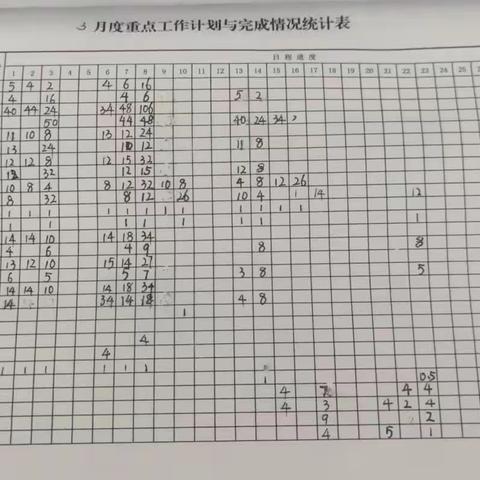 3 月度重点工作计划与完成情况统计表
日程进度
1 2 3 4 5 6 7 8 9 10 11 12 13 14 15 16 17 18 19 20 21 22 23 24 25
5 4 2 4 6 16
4 16 4 6 5 2
40 44 24 34 48 106
50 44 48 40 24 34
11 10 8 13 12 24
13 24 10 12 11 8
12 12 8 12 15 32
32 12 15 12 8
10 8 4 8 12 32 10 8 4 8 12 26
8 32 8 12 26 10 4 1 14 12
1 1 1 1 1 1 1 1 1 1 1 1
1 1 1 1 1 1 1 1
14 14 10 14 18 34
4 6 4 9 8 8
13 12 10 15 14 27
6 5 5 7 3 8 5
14 14 10 14 18 34
14 34 14 18 4 8
1
4
4
1 1 1 1 1 1
1 0.5
4 4 4
4 3 4 2 4
9 2
4 5 1